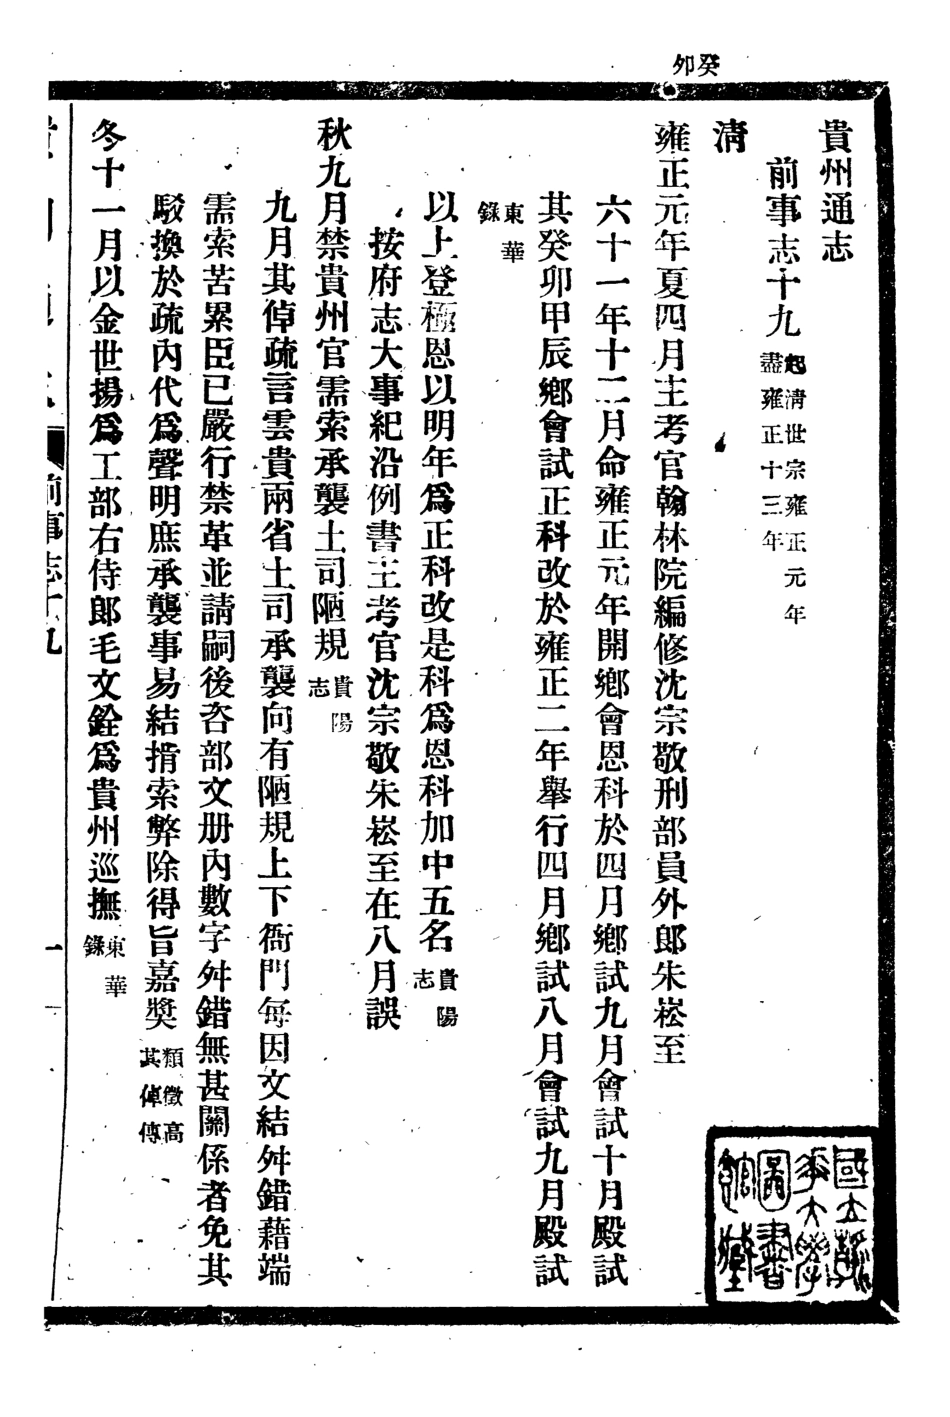 癸卯
貴州通志
前事志十九 起清世宗雍正元年
盡雍正十三年
清
雍正元年夏四月主考官翰林院編修沈宗敬刑部員外郎朱崧至
六十一年十二月命雍正元年開鄉會恩科於四月鄉試九月會試十月殿試
其癸卯甲辰鄉會試正科改於雍正二年舉行四月鄉試八月會試九月殿試
東華
錄
以上登極恩以明年爲正科改是科爲恩科加中五名 貴陽
志
按府志大事紀沿例書主考官沈宗敬朱崧至在八月誤
秋九月禁貴州官需索承襲土司陋規 貴陽
志
九月其倬疏言雲貴兩省土司承襲向有陋規上下衙門每因文結舛錯藉端
需索苦累臣已嚴行禁革並請嗣後咨部文册內數字舛錯無甚關係者免其
駁換於疏內代爲聲明庶承襲事易結揹索弊除得旨嘉獎 類徵高
其倬傳
冬十一月以金世揚爲工部右侍郎毛文銓爲貴州巡撫 東華
錄
前事志十九
一
國立清
華大學
圖書
館藏